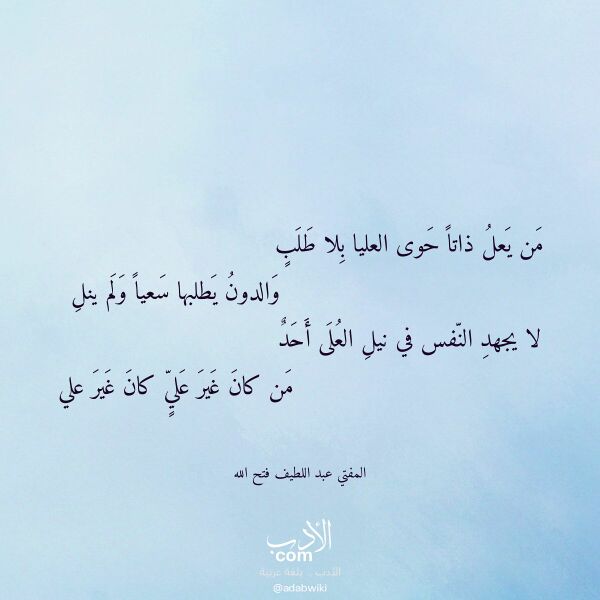 مَن يَعلُ ذاتاً حَوى العليا بِلا طَلَبٍ
وَالدونُ يَطلبها سَعياً وَلَم ينلِ
لا يجهدِ النّفس في نيلِ العُلَى أَحَدٌ
مَن كانَ غَيرَ عَليٍّ كانَ غَيرَ علي
المفتي عبد اللطيف فتح الله
الأدب
com
الأدب .. بلغة عربية
@adabwiki